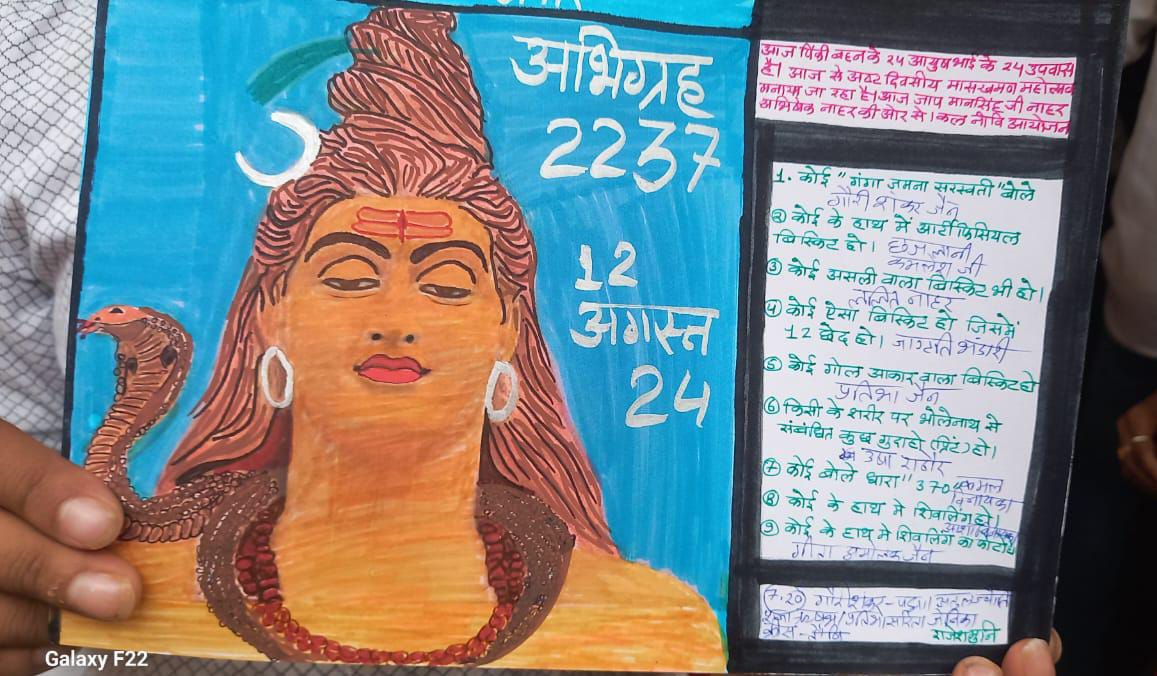 अभिग्रह
2237
12
अगस्त
24
आज पिंकी बहन के २५ आयुषभाई के 24 उपवास
है। आज से अष्ट दिवसीय मासखमण महोत्सव
मनाया जा रहा है। आज जाप मानसिंह जी नाहर
अभिषेक नाहर की ओर से। कल नीवि आयोजन
1. कोई "गंगा जमना सरस्वती" बोले
गौरी शंकर जैन
② कोई के हाथ में आर्टीफिसियल
बिस्किट हो। छजलानी
कमलेश जी
③ कोई असली वाला बिस्किट भी हो।
ललित नाहर
④ कोई ऐसा बिस्किट हो जिसमें
12 छेद हो। जाग्रति भंडारी
⑤ कोई गोल आकार वाला बिस्किट हो
प्रतिभा जैन
⑥ किसी के शरीर पर भोलेनाथ से
संबंधित कुछ गुदाहो (प्रिंट) हो।
उषा राठौर
⑦ कोई बोले धारा "370 कमल
विनायका
⑧ कोई के हाथ मे शिवलिंग हो।
⑨ कोई के हाथ मे शिवलिंग का फोटो
जैन
(7.20) गौरी शंकर -
राजेशमुनि
Galaxy F22